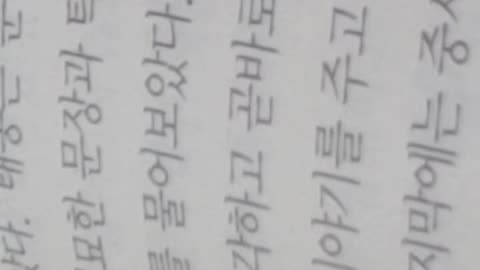 묘한 문장과
를 물어보았다.
각하고 곧바로
이야기를 주고
지막에는